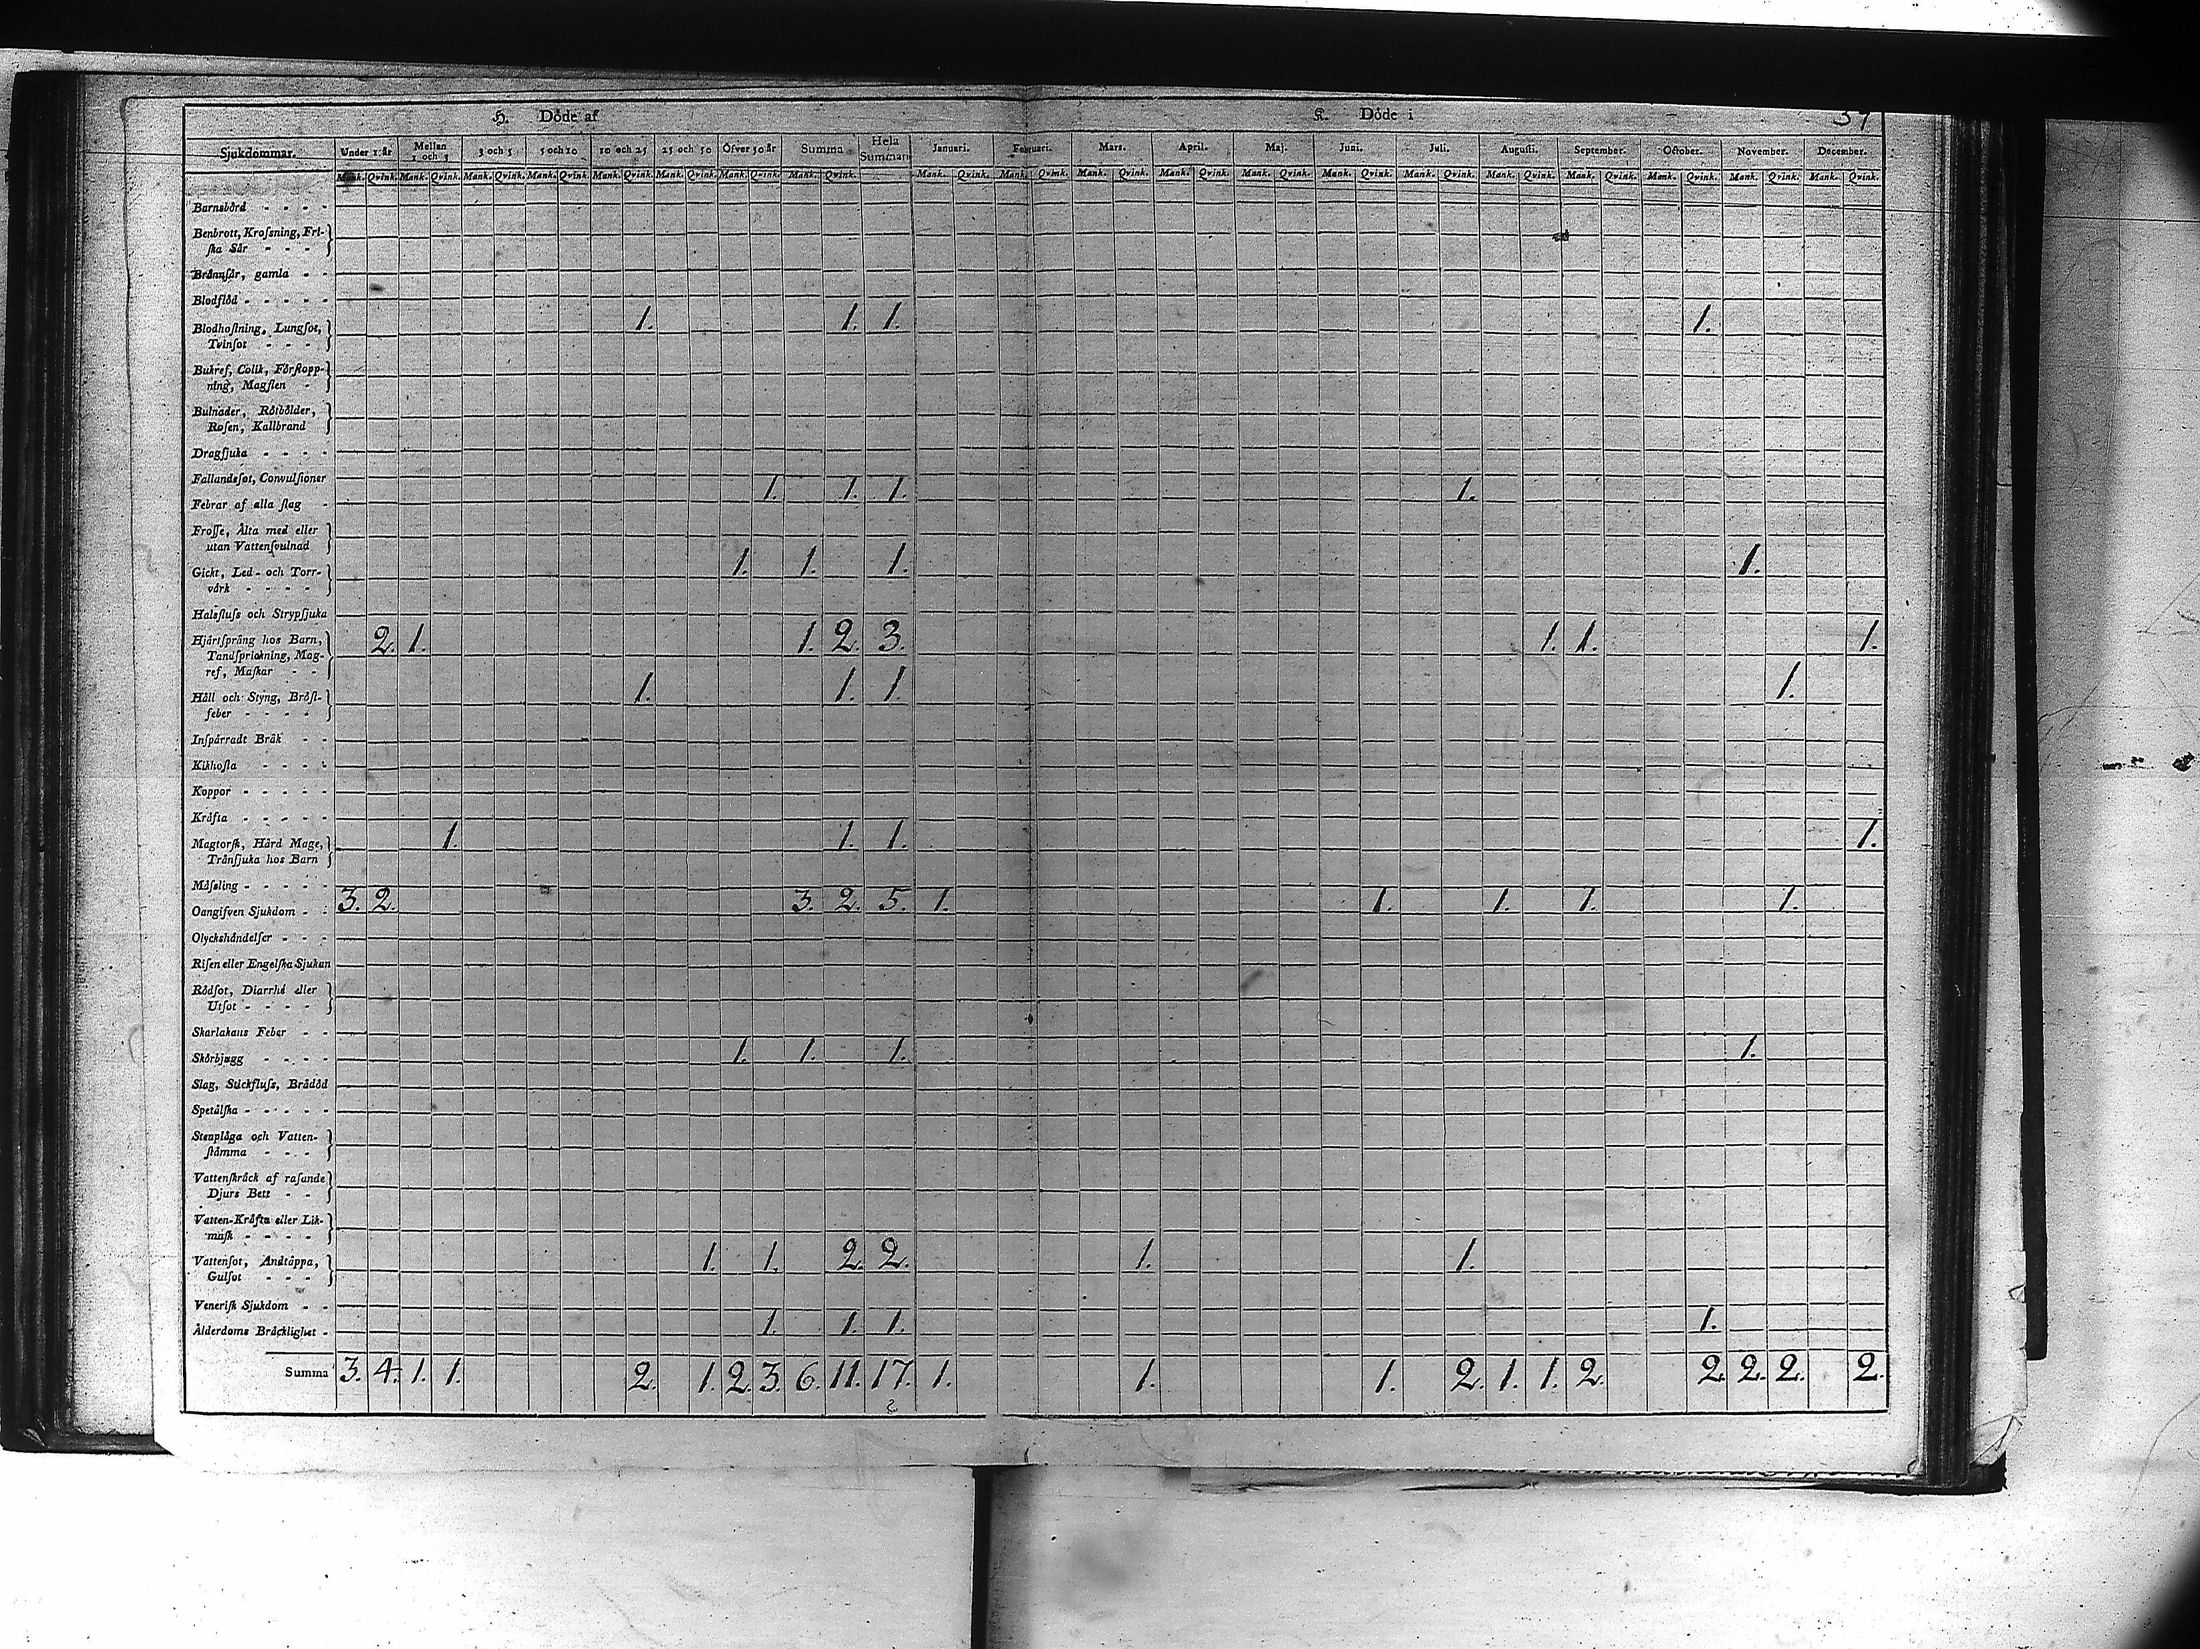 H. Döde af K. Döde i
Sjukdommar. Under 1 år Mellan 1 och 3 3 och 5 5 och 10 10 och 25 25 och 50 Öfver 50 år Summa Hela Summan Januari. Februari. Mars. April. Maj. Juni. Juli. Augusti. September. October. November. December.
Mank. Qvink. Mank. Qvink. Mank. Qvink. Mank. Qvink. Mank. Qvink. Mank. Qvink. Mank. Qvink. Mank. Qvink. Mank. Qvink. Mank. Qvink. Mank. Qvink. Mank. Qvink. Mank. Qvink. Mank. Qvink. Mank. Qvink. Mank. Qvink. Mank. Qvink. Mank. Qvink. Mank. Qvink. Mank. Qvink.
Barnsbörd - - - -
Benbrott, Krosſning, Fri-
ſka Sår - - -
Brännſår, gamla - -
Blodflöd - - - - -
Blodhoſtning, Lungſot, 1. 1. 1. 1.
Tvinſot - - -
Bukref, Colik, Förſtopp-
ning, Magſlen -
Bulnader, Rötbölder,
Roſen, Kallbrand
Dragſjuka - - - -
Fallandeſot, Convulſioner
Febrar af alla ſlag - 1. 1. 1. 1.
Froſſe, Älta med eller
utan Vattenſvulnad
Gickt, Led- och Torr- 1. 1. 1. 1.
värk - - - -
Halsfluſs och Strypſjuka
Hjärtſprång hos Barn, 2. 1. 1. 2. 3. 1. 1. 1.
Tandſprickning, Mag-
ref, Maſkar - -
Håll och Styng, Bröſt- 1. 1. 1. 1.
feber - - - -
Inſpärradt Bråk - -
Kikhoſta - - - -
Koppor - - - - -
Kräfta - - - - -
Magtorſk, Hård Mage, 1. 1. 1. 1.
Tränſjuka hos Barn
Mäſsling - - - - -
Oangifven Sjukdom - - 3. 2. 3. 2. 5. 1. 1. 1. 1. 1.
Olyckshändelſer - - -
Riſen eller Engelſka Sjukan
Rödſot, Diarrhé eller
Utſot - - - -
Skarlakans Feber - -
Skörbjugg - - - - 1. 1. 1. 1.
Slag, Stickfluſs, Brådöd
Spetälſka - - - - -
Stenplåga och Vatten-
ſtämma - - - -
Vattenſkräck af raſande
Djurs Bett - -
Vatten-Kräfta eller Lik-
maſk - - - -
Vattenſot, Andtäppa, 1. 1. 2. 2. 1. 1.
Gulſot - - -
Veneriſk Sjukdom - -
Ålderdoms Bräcklighet - 1. 1. 1. 1.
Summa 3. 4. 1. 1. 2. 1. 2. 3. 6. 11. 17. 1. 1. 1. 2. 1. 1. 2. 2. 2. 2. 2.